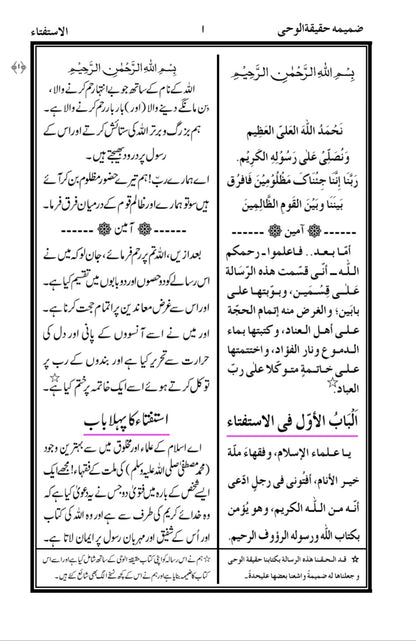 ضمیمہ حقیقۃ الوحی
۱
الاستفتاء
﴿۱﴾
بِسْمِ اللّٰہِ الرَّحْمٰنِ الرَّحِیْمِ
نَحْمَدُ اللّٰہَ العَلِیَّ العَظِیْم
وَ نُصَلِّیْ عَلٰی رَسُوْلِہِ الْکَرِیْم.
رَبَّنَا إِنَّنَا جِئْنَاکَ مَظْلُوْمِیْنَ فَافْرُقْ
بَیْنَنَا وَبَیْنَ القَوْمِ الظَّالِمِیْنَ
------ آمین ------
أمّا بعد.. فاعلموا- رحمکم
اللّٰہ - أنی قسّمت ھذہ الرّسالۃ
علٰی قِسْمَین، وبوّبتھا علٰی
بابَین؛ والغرض منہ إتمام الحجّۃ
علٰی أھل العناد، وکتبتھا بماء
الدموع ونار الفؤاد، واختتمتھا
علٰی خاتمۃٍ متوکّلا علٰی ربّ
العباد☆
اَلْبَابُ الأوّل فی الاستفتاء
یا علماء الإسلام، وفقھاءَ ملّۃ
خیر الأنام، أفتونی فی رجلٍ ادّعی
أنّہ من اللّٰہ الکریم، وھو یؤمن
بکتاب اللّٰہ ورسولہ الرؤوف الرحیم.
☆ قد ألحقنا ھذہ الرسالۃ بکتابنا حقیقۃ الوحی
و جعلناھا لہ ضمیمۃ واشعنا بعضھا علیحدۃ.
بِسْمِ اللّٰہِ الرَّحْمٰنِ الرَّحِیْمِ
اللہ کے نام کے ساتھ جو بے انتہا رحم کرنے والا،
بن مانگے دینے والا (اور) بار بار رحم کرنے والا ہے۔
ہم بزرگ و برتر اللہ کی ستائش کرتے اور اس کے
رسول پر درود بھیجتے ہیں۔
اے ہمارے ربّ! ہم تیرے حضور مظلوم بن کر آئے
ہیں سو تو ہمارے اور ظالم قوم کے درمیان فرق فرما۔
------ آمین ------
بعد ازیں، اللہ تم پر رحم فرمائے، جان لو کہ میں نے
اس رسالے کو دو حصوں اور دو بابوں میں تقسیم کیا ہے۔
اور اس سے غرض معاندین پر اتمام حجت کرنا ہے۔
اور میں نے اسے آنسوؤں کے پانی اور دل کی
حرارت سے تحریر کیا ہے اور بندوں کے رب پر
توکل کرتے ہوئے اسے ایک خاتمہ پر ختم کیا ہے۔☆
استفتاء کا پہلا باب
اے اسلام کے علماء اور مخلوق میں سے بہترین وجود
(محمد مصطفیٰ صلی اللہ علیہ وسلم) کی ملت کے فقہاء! مجھے ایک
ایسے شخص کے بارہ میں فتویٰ دو جس نے یہ دعویٰ کیا ہے کہ
وہ خدائے کریم کی طرف سے ہے اور وہ اللہ کی کتاب
اور اُس کے شفیق اور مہربان رسول پر ایمان لاتا ہے۔
☆ ہم نے اس رسالہ کو اپنی کتاب حقیقۃ الوحی کے ساتھ شامل کیا ہے اور اسے اس
کتاب کا ضمیمہ بنایا ہے اور ہم نے اس کے کچھ نسخے الگ بھی شائع کئے ہیں۔